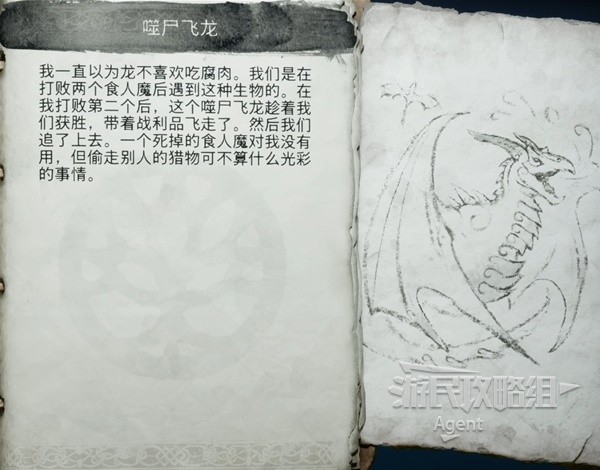 噬尸飞龙
我一直以为龙不喜欢吃腐肉。我们是在
打败两个食人魔后遇到这种生物的。在
我打败第二个后，这个噬尸飞龙趁着我
们获胜，带着战利品飞走了。然后我们
追了上去。一个死掉的食人魔对我没有
用，但偷走别人的猎物可不算什么光彩
的事情。
游民攻略组
Agent